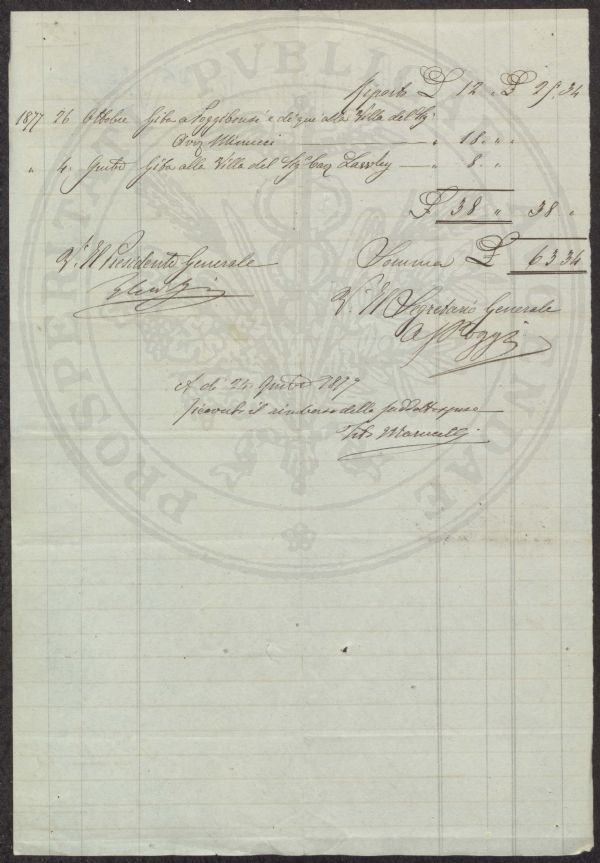 Riporto £ 12 " £ 25. 34
1877 26 Ottobre Gita a Poggibonsi e di qui alla Villa del Sigr
Minucci — " 18. " "
" 4. Gita alla Villa del Sigr Cav — " 8. "
£ 38 " 38 "
Vo Il Presidente Generale Somma £ 63 34
Vo Il Segretario Generale
Poggi
A dì 24 1877
ricevuto il rimborso delle suddette spese
Marucelli
PROSPERITATI PVBLICAE AVGENDAE